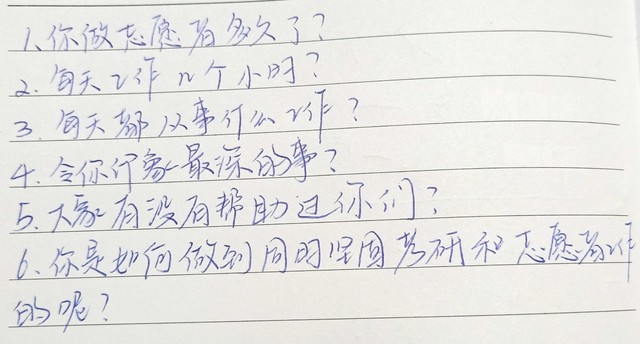 1、你做志愿者多久了？
2、每天工作几个小时？
3、每天都从事什么工作？
4、令你印象最深的事？
5、大家有没有帮助过你们？
6、你是如何做到同时坚固考研和志愿者工作
的呢？